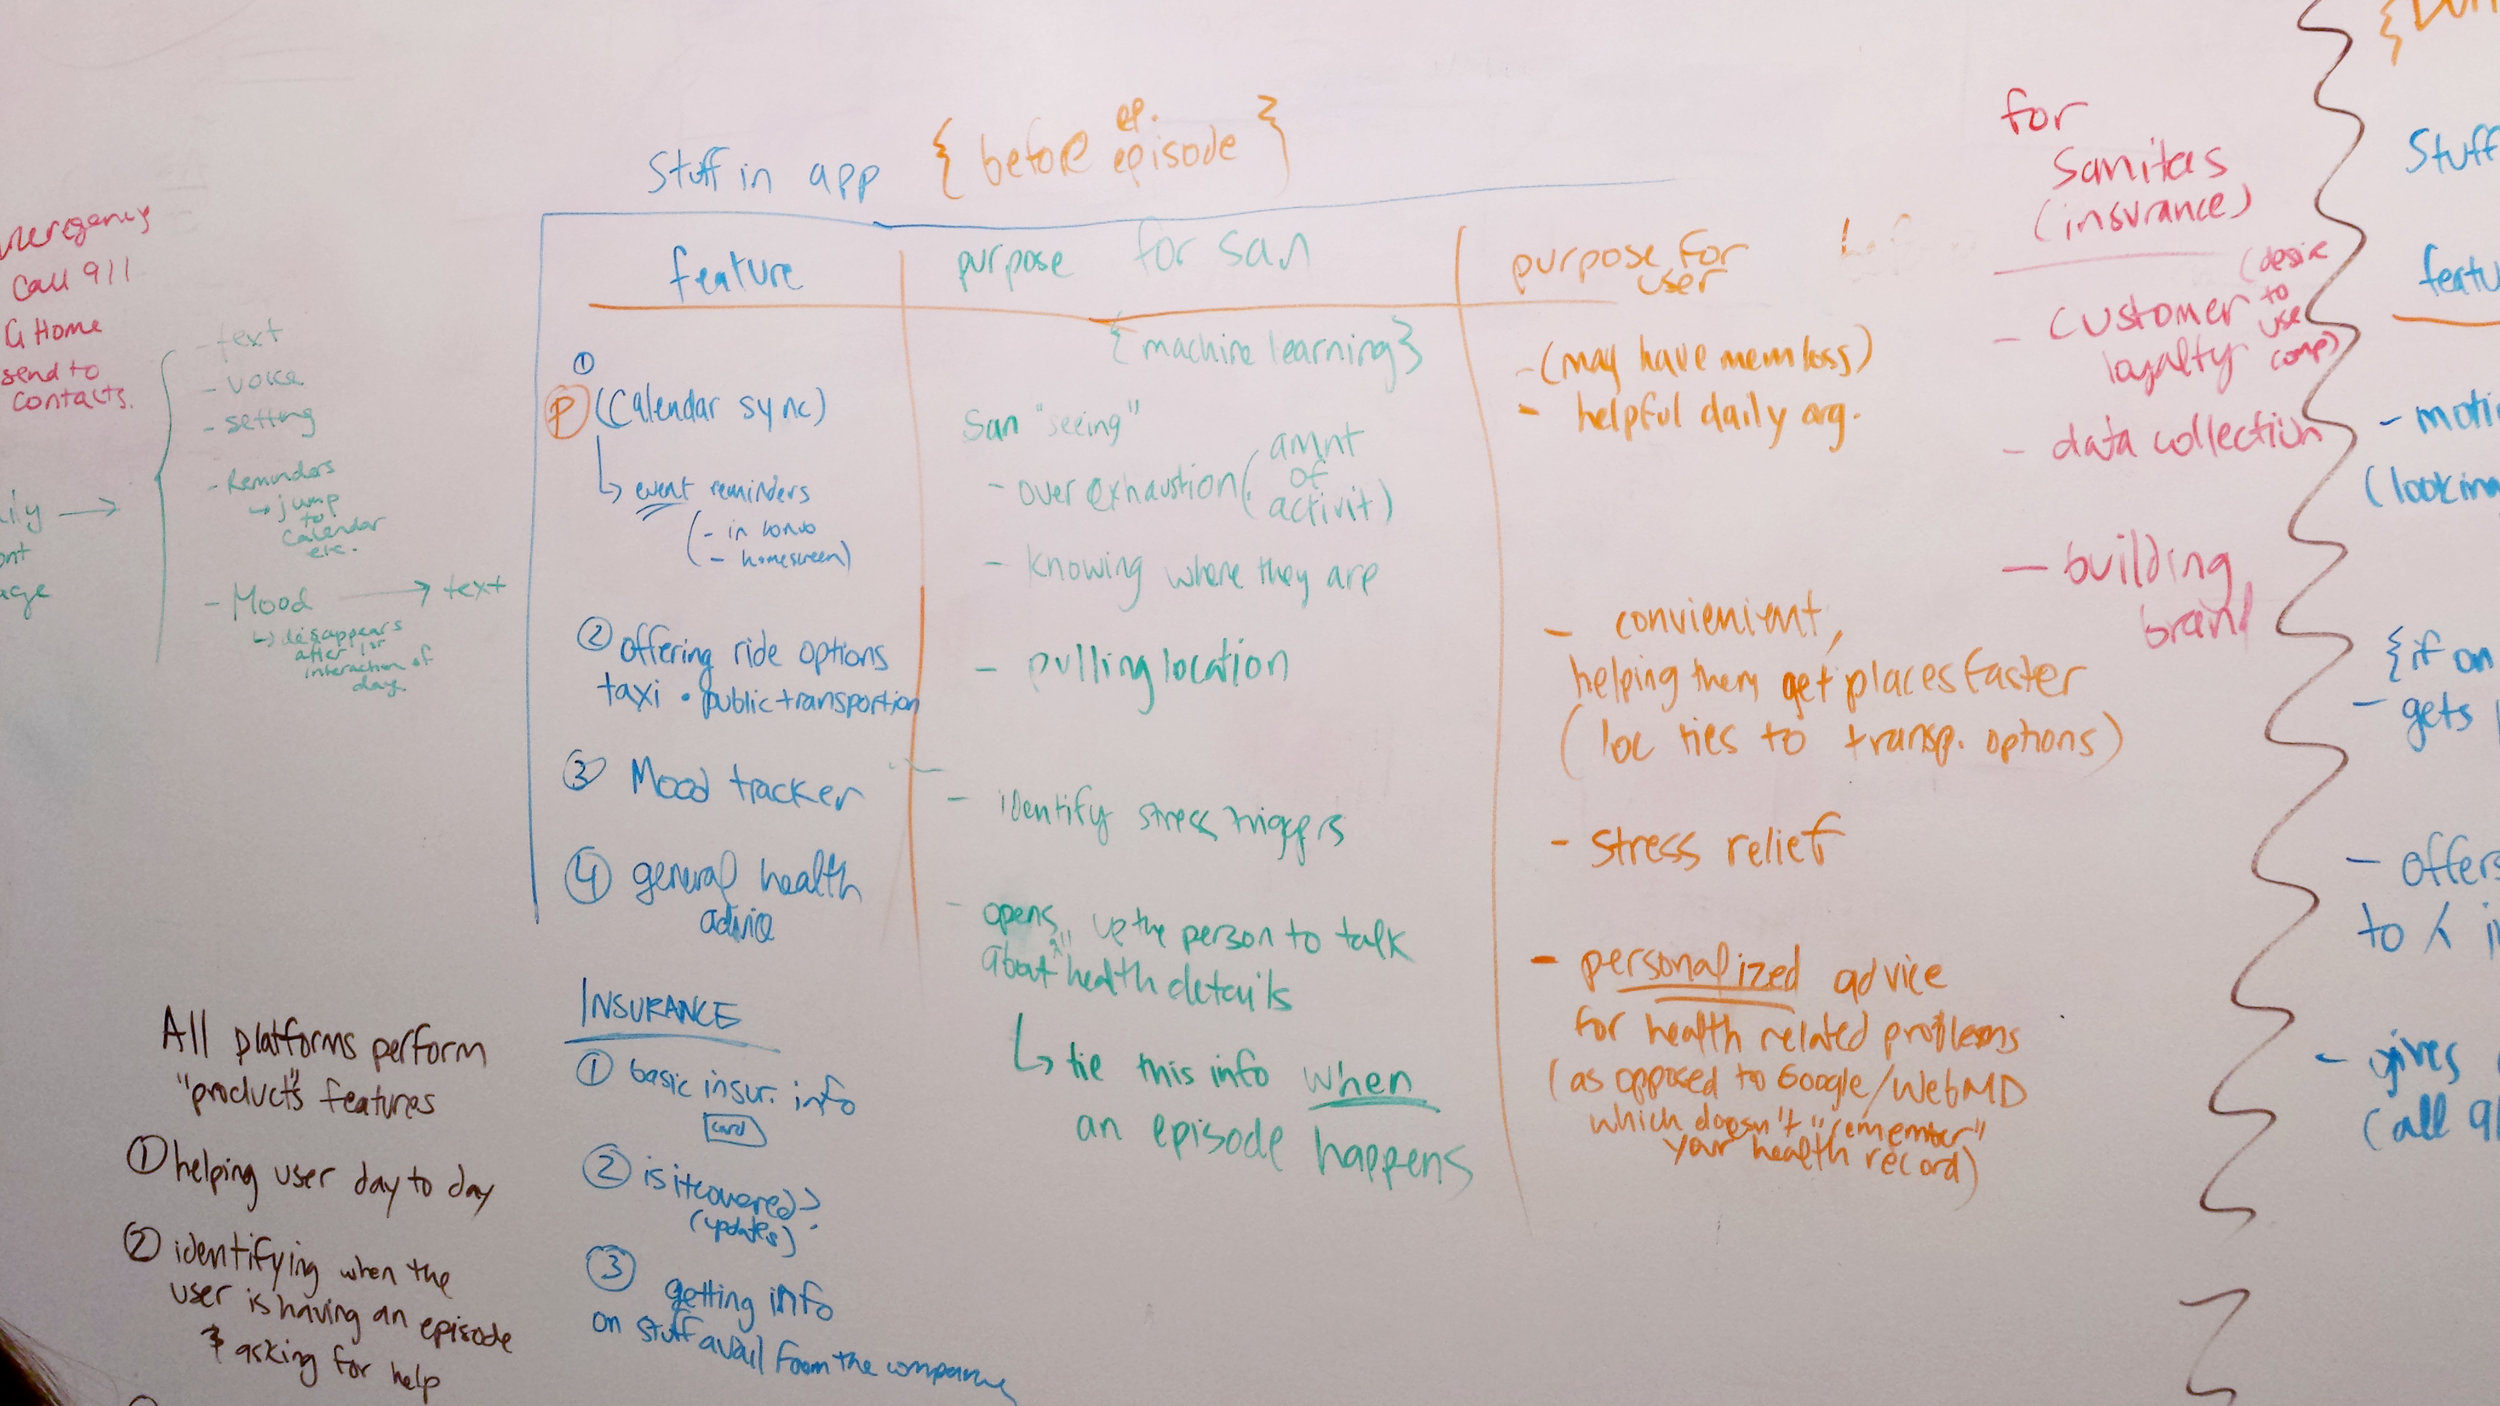 Call 911
G Home
send to
contacts.
- text
- voice
- setting
- Reminders
↳ jump
to
calendar
etc.
- Mood → text
↳ disappears
after 1st
interaction of
day.
All platforms perform
"products" features
① helping user day to day
② identifying when the
user is having an episode
& asking for help
Stuff in app { before episode }
ep.
feature
①
P (Calendar sync)
↳ event reminders
(- in convo
- homescreen)
② offering ride options
taxi • public transportion
③ Mood tracker
④ general health
advice
INSURANCE
① basic insur. info
card
② is it covered?
(updates)
③ getting info
on stuff avail from the company
purpose for san
{machine learning}
San "seeing"
- over exhaustion (amnt
of
activit)
- knowing where they are
- pulling location
- identify stress triggers
- opens up the person to talk
about health details
↳ tie this info when
an episode happens
purpose for
user
- (may have mem loss)
- helpful daily org.
- convienient,
helping them get places faster
(loc ties to transp. options)
- stress relief
- personalized advice
for health related problems
(as opposed to Google/WebMD
which doesn't "remember"
your health record)
for
Sanitas
(insurance)
- customer
loyalty
(desire
to
use
comp)
- data collection
- building
brand
Stuff
{if on
- gets
- offers
to
- gives
(call 91